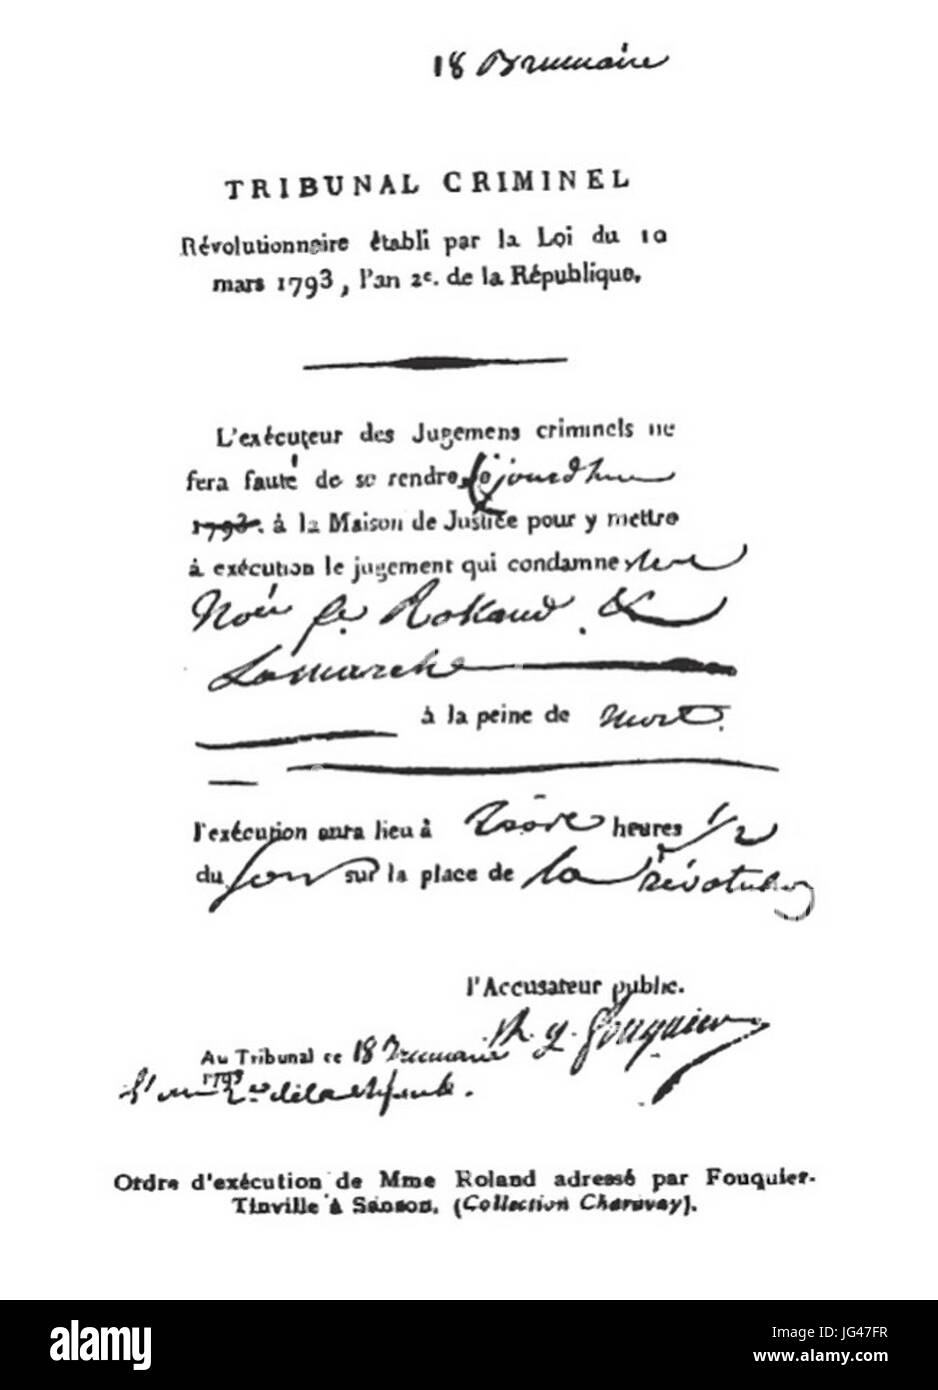 18 Brumaire
TRIBUNAL CRIMINEL
Révolutionnaire établi par la Loi du 10
mars 1793, l'an 2e. de la République.
L'exécuteur des Jugemens criminels ne
fera faute de se rendre, ajourdhui
1793. à la Maison de Justice pour y mettre
à exécution le jugement qui condamne
fe. Roland &
Lamarche
à la peine de mort.
l'exécution aura lieu à heures 1/2
du sur la place de la révolution
l'Accusateur public.
Au Tribunal ce 18 Brumaire
1793
l'an 2e de la
Ordre d'exécution de Mme Roland adressé par Fouquier-
Tinville à Sanson. (Collection Charavay).
alamy
Image ID: JG47FR
www.alamy.com